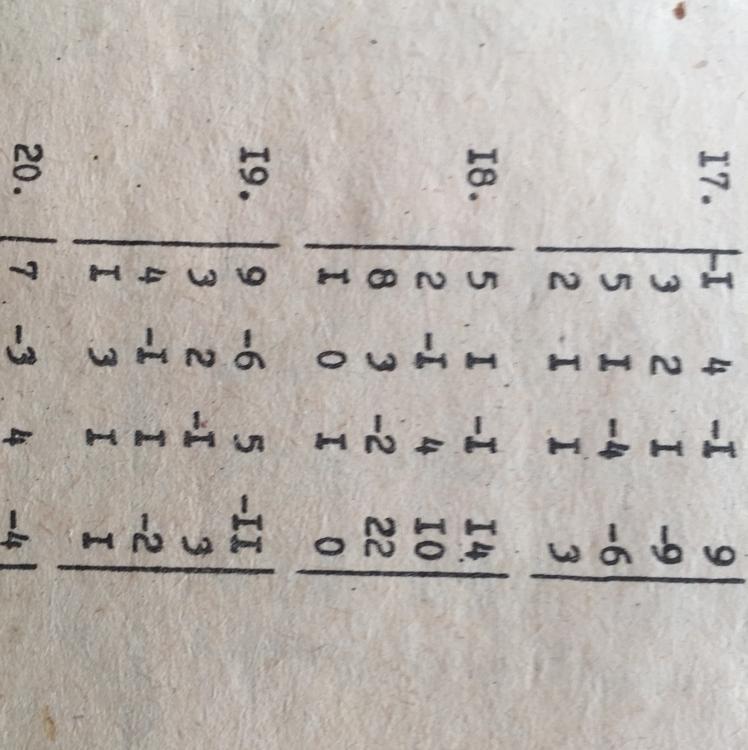 I7. -I 4 -I 9
3 2 I -9
5 I -4 -6
2 I I 3
I8. 5 I -I I4
2 -I 4 I0
8 3 -2 22
I 0 I 0
I9. 9 -6 5 -II
3 2 -I 3
4 -I I -2
I 3 I I
20. 7 -3 4 -4